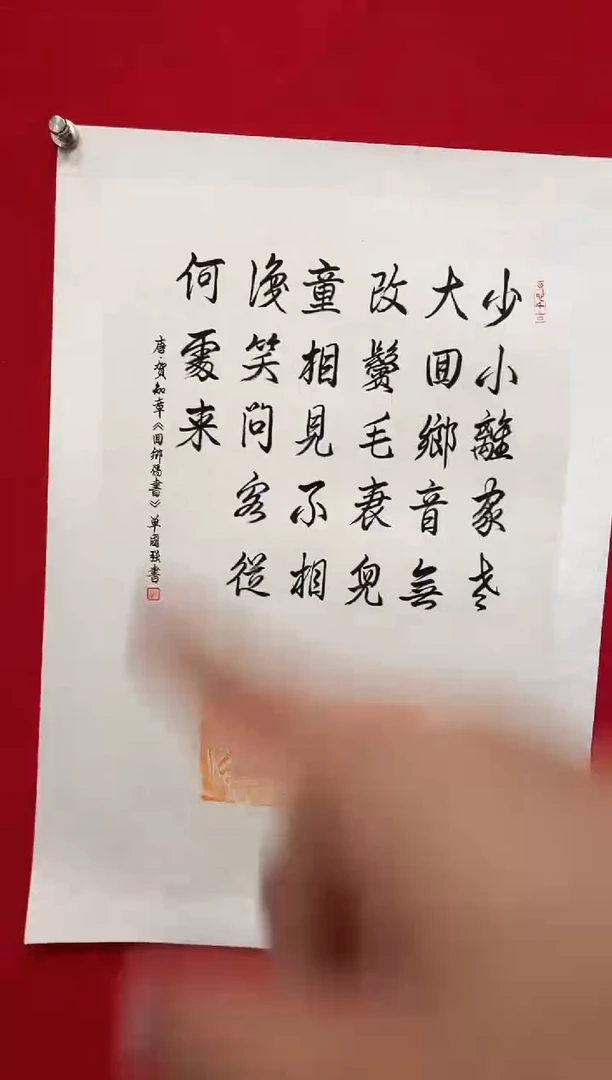 少小離家老
大囬鄉音無
改鬢毛衰兒
童相見不相
識笑問客從
何處来
唐·賀知章《囬鄉偶書》單國強書